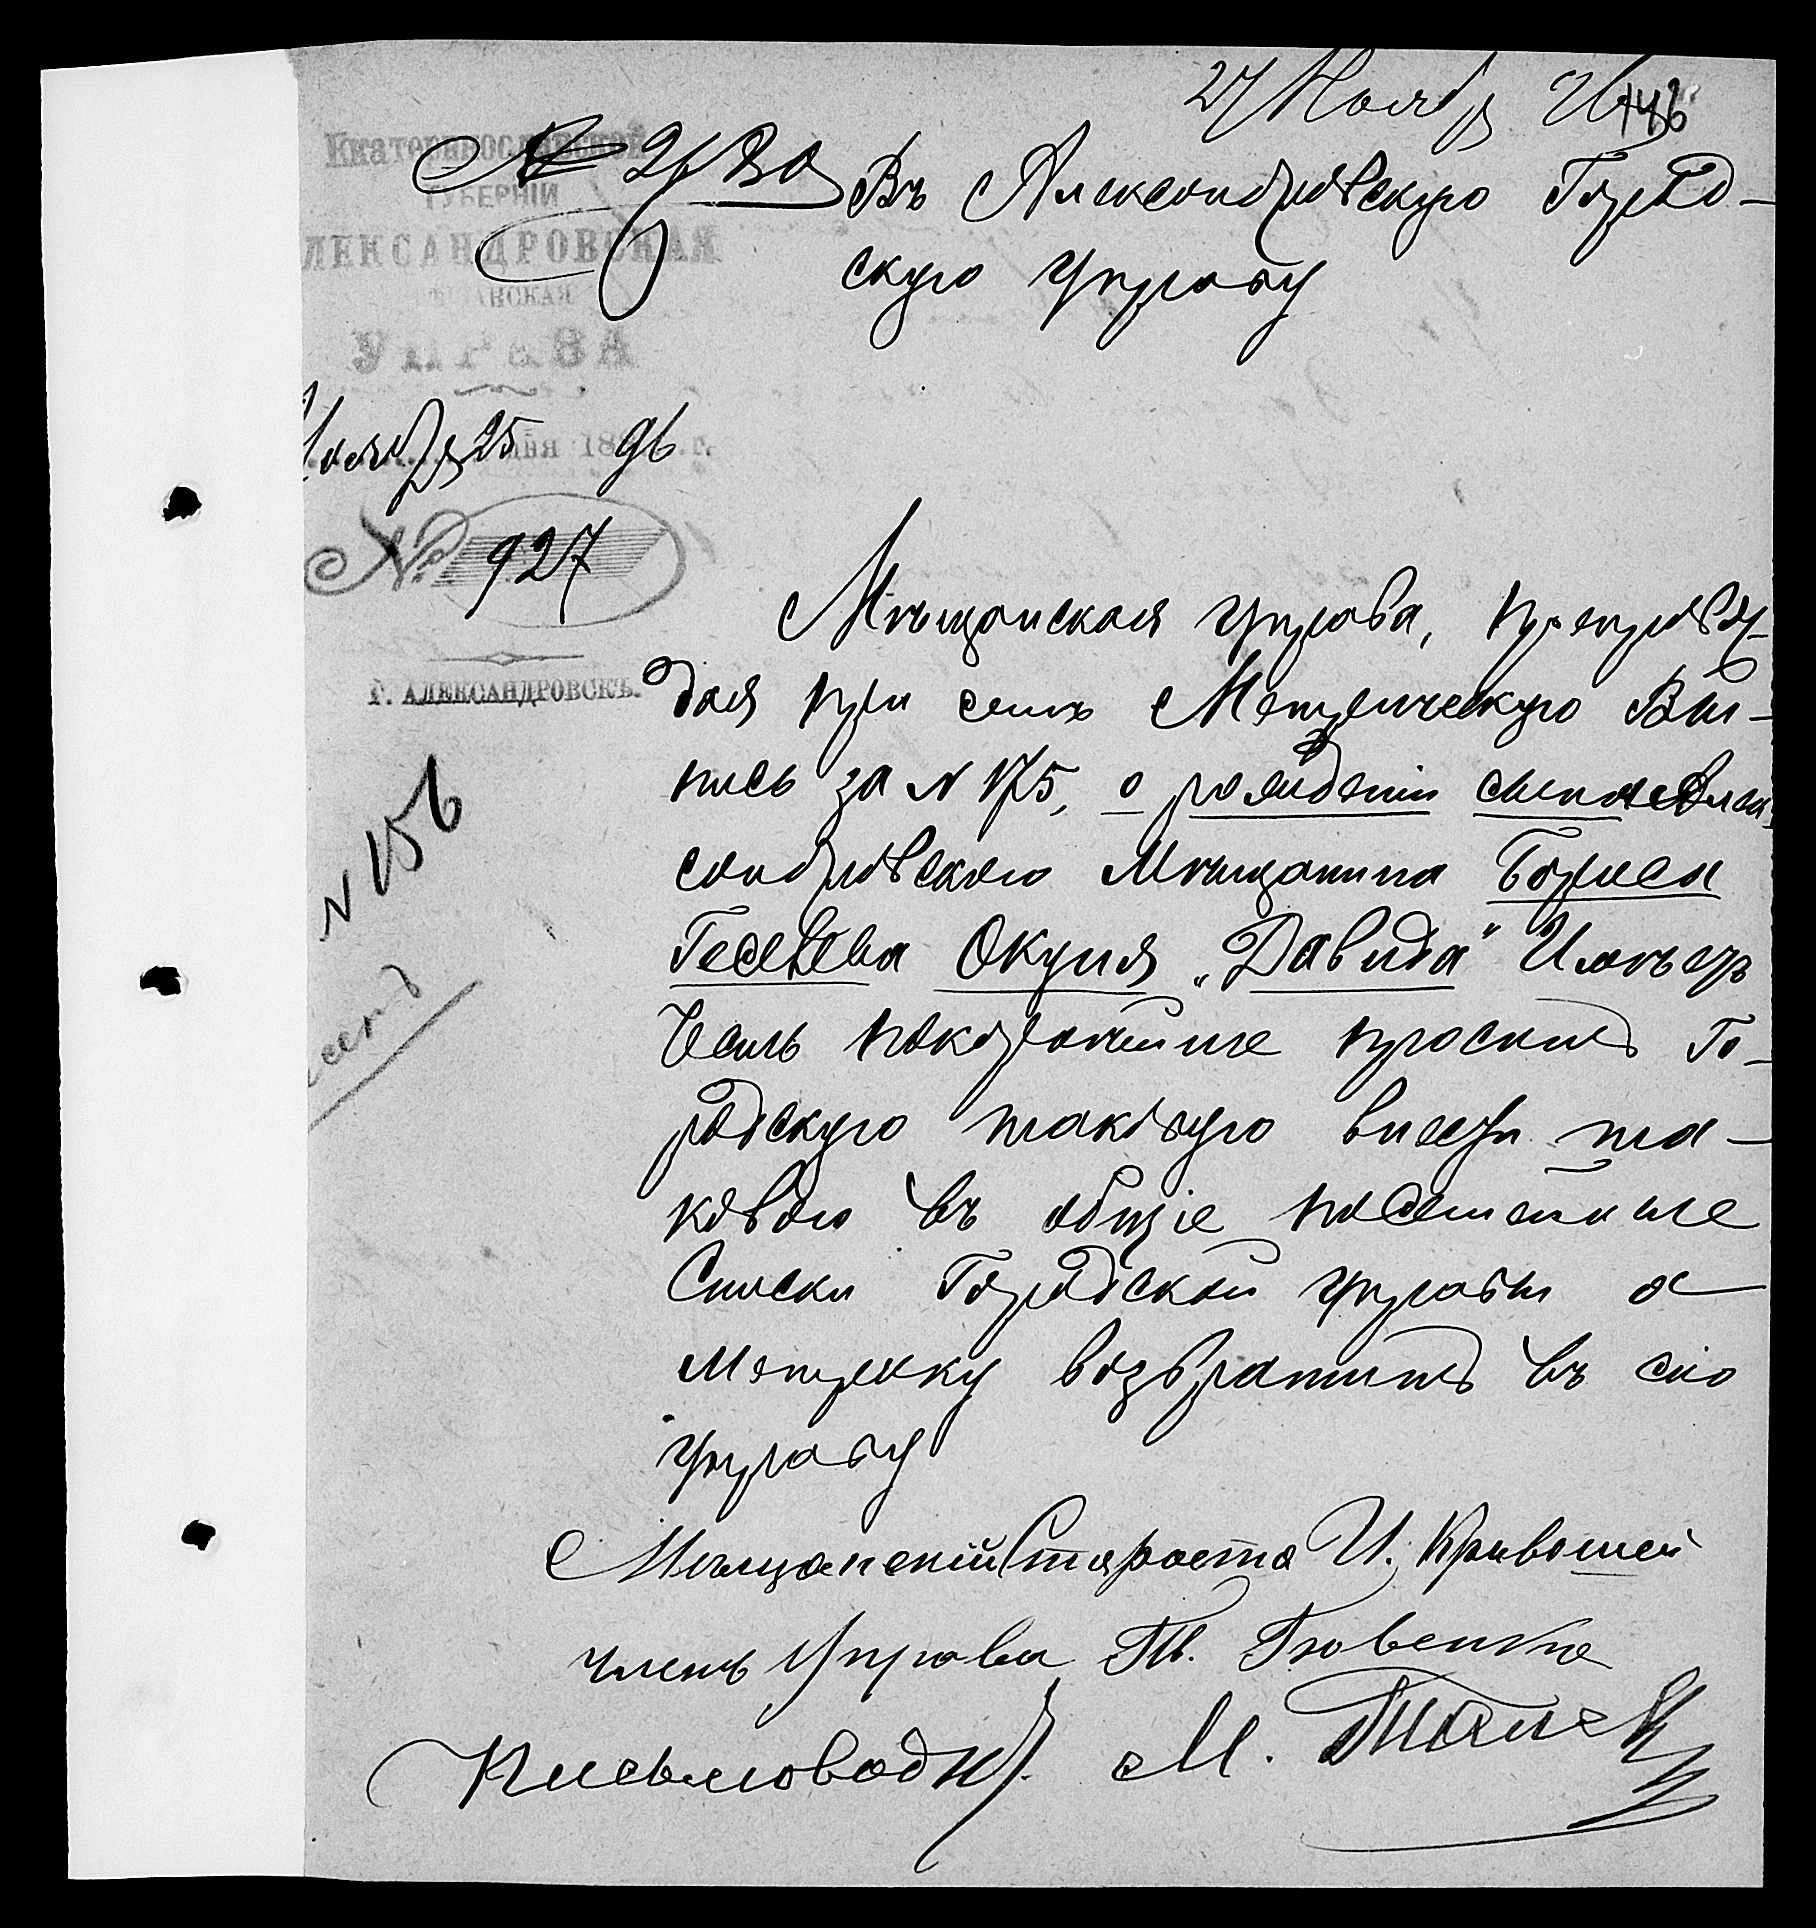 27 Ноября
146
Екатеринославской
ГУБЕРНІИ
АЛЕКСАНДРОВСКАЯ
УПРАВА
Ноября 25 дня 1896 г.
№ 927
Г. АЛЕКСАНДРОВСКЪ.
N 156
Въ Александровскую Город-
скую Управу
Мѣщанская Управа, препровож-
дая при семъ Метрическую Вы-
пись за N 175, о рожденіи сына Алек-
сандровскаго Мѣщанина Бориса
Окуня „Давида“ Имѣетъ
Честь покорнѣйше просить Го-
родскую таковую внести та-
ковою въ общіе посемейные
Списки Городской Управы а
Метрику возвратить въ сію
Управу
Мѣщанскій Староста И. Кривошей
Членъ Управы
Письмоводит. М.